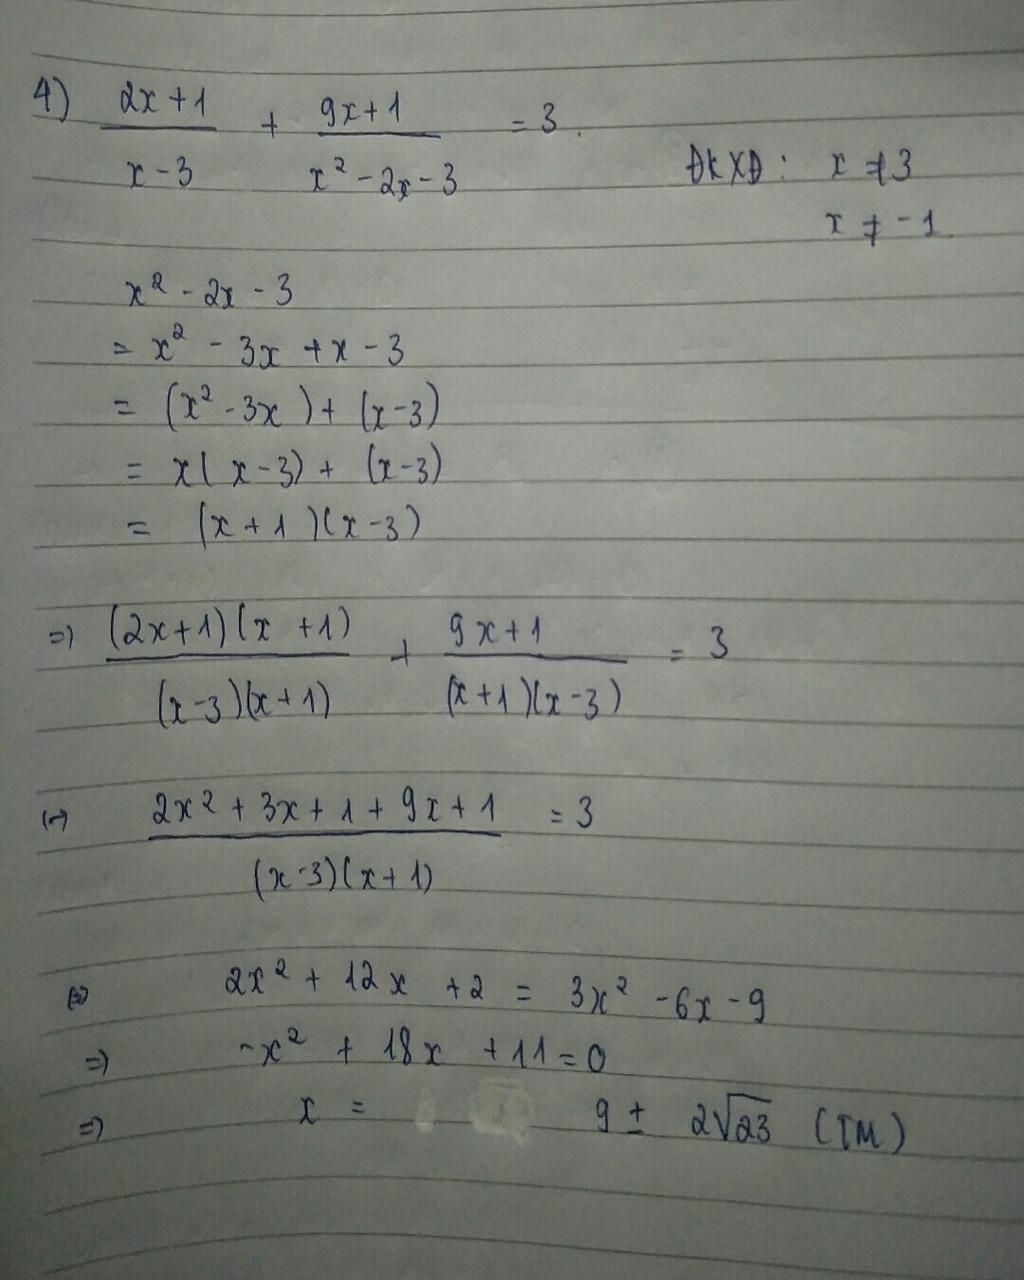 4) (2x+1)/(x-3) + (9x+1)/(x²-2x-3) = 3.
ĐKXĐ: x ≠ 3
x ≠ -1.
x² - 2x - 3
= x² - 3x + x - 3
= (x² - 3x) + (x-3)
= x(x-3) + (x-3)
= (x+1)(x-3)
=> ((2x+1)(x+1))/((x-3)(x+1)) + (9x+1)/((x+1)(x-3)) = 3
(=) (2x²+3x+1+9x+1)/((x-3)(x+1)) = 3
(=) 2x² + 12x + 2 = 3x² - 6x - 9
=) -x² + 18x + 11 = 0
=) x = 9 ± 2√23 (TM)